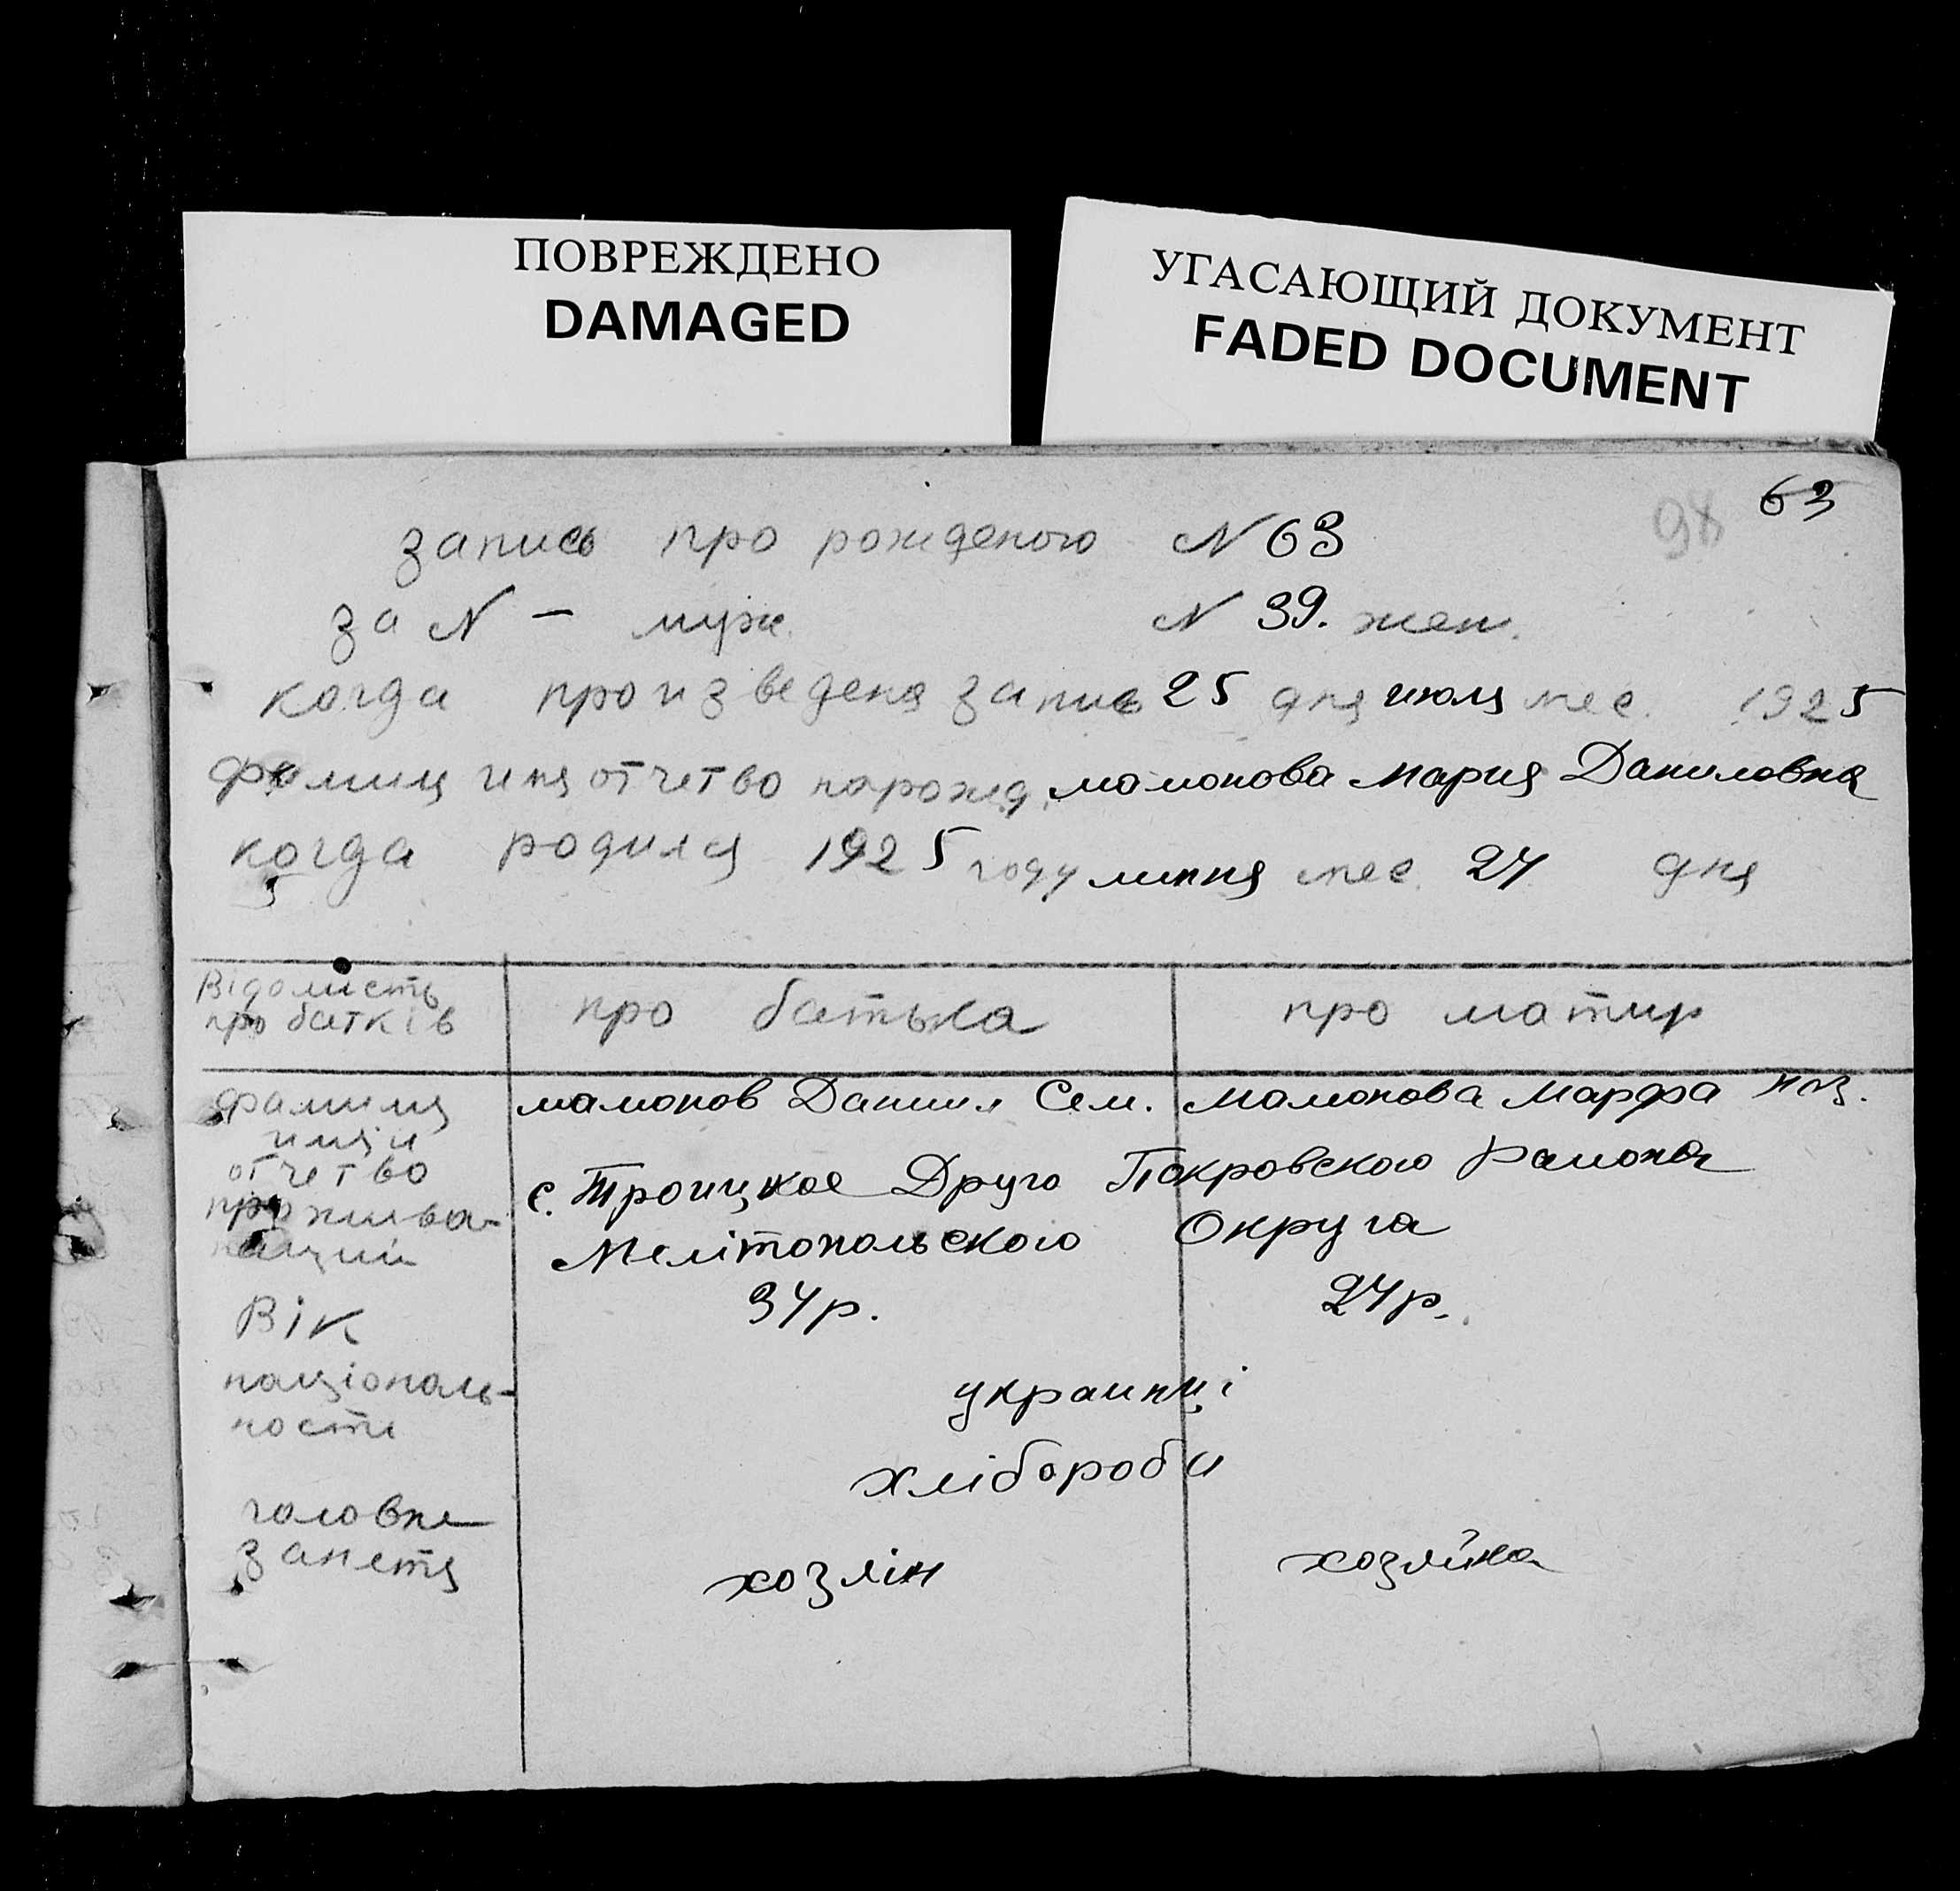 ПОВРЕЖДЕНО
DAMAGED
УГАСАЮЩИЙ ДОКУМЕНТ
FADED DOCUMENT
63
запись про рожденого N 63
за N — муж. N 39. жен.
когда произведена запись 25 дня июля мес. 1925
фамили имя отчетво нарожд. мамонова Мария Даниловна
когда родился 1925 году липня мес. 24 дня
Відомисть про батька про матир
про батків
фамилия мамонов Даниил Сем. Мамонова Марфа
имя и
отчетво с. Троицкое Друго Покровского Района
Мелітопольского Округа
Вік 34р. 24р.
національ-
ности украинці
хлібороби
головне
занетя хозяін хозяйка